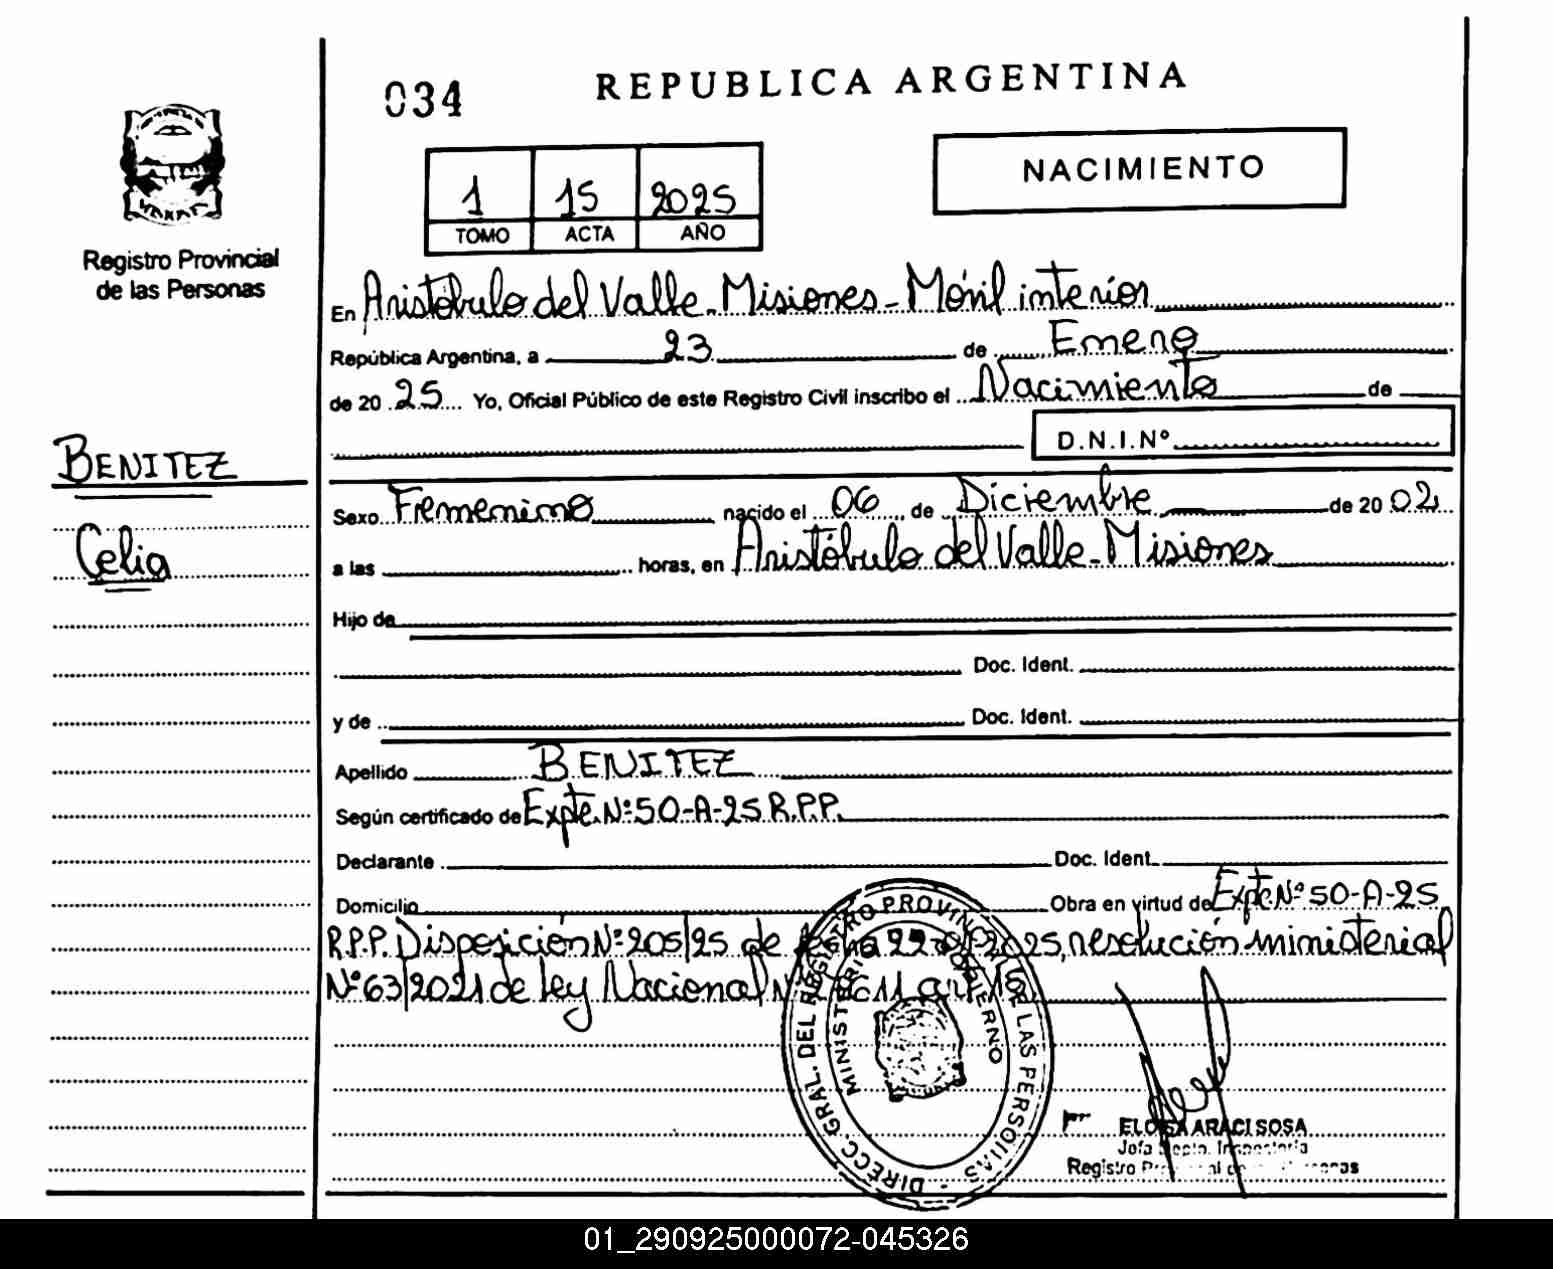 034
REPUBLICA ARGENTINA
NACIMIENTO
1 15 2025
TOMO ACTA AÑO
Registro Provincial
de las Personas
En Aristóbulo del Valle - Misiones - Móvil interior
República Argentina, a 23 de Enero
de 2025 Yo, Oficial Público de este Registro Civil inscribo el Nacimiento de
D.N.I.Nº
BENITEZ
Celia
Sexo Femenino nacido el 06 de Diciembre de 2002
a las horas, en Aristóbulo del Valle - Misiones
Hijo de
Doc. Ident.
y de Doc. Ident.
Apellido BENITEZ
Según certificado de Expte. Nº 50-A-25 R.P.P.
Declarante Doc. Ident.
Domicilio Obra en virtud de Expte Nº 50-A-25
R.P.P. Disposición Nº 205/25 de 2025, resolución ministerial
Nº 63/2021 de ley Nacional
DIRECC. GRAL. DEL REGISTRO PROVINCIAL DE LAS PERSONAS
MINISTERIO GOBIERNO
ELOISA ARACI SOSA
Jefa Depto. Inspectoria
Registro Provincial de las Personas
01_290925000072-045326